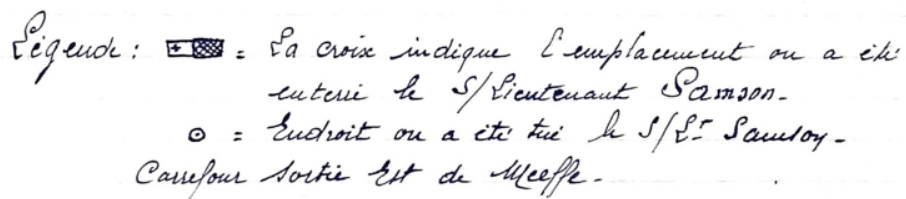 Légende : = La croix indique l'emplacement ou a été
enterré le S/Lieutenant Samson.
⊙ = Endroit ou a été tué le S/Lt Samson.
Carrefour sortie Est de Meeffe.